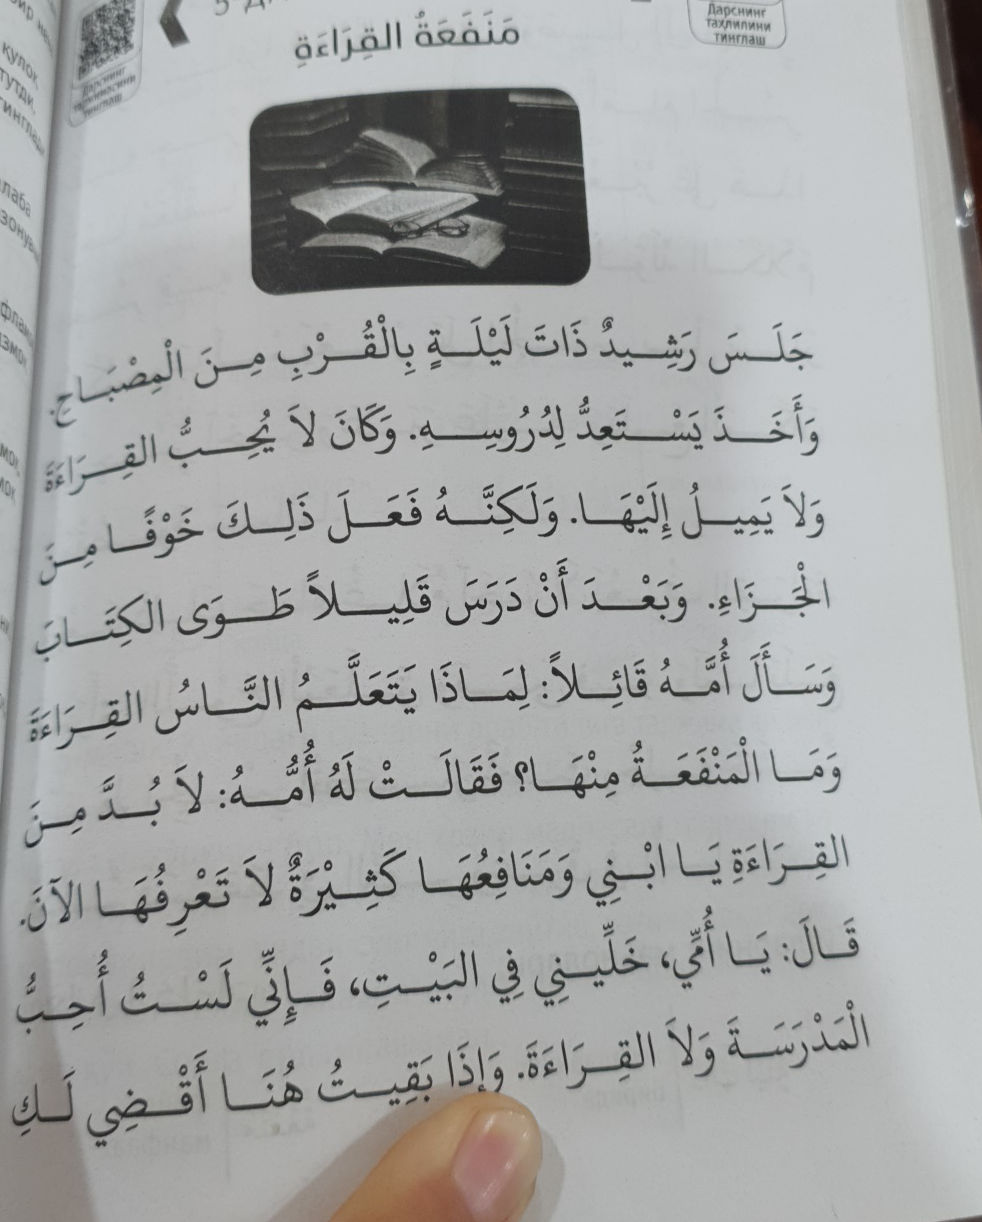 Дарснинг
таҳлилини
тинглаш
Дарснинг
таржимасини
тинглаш
مَنْفَعَةُ القِرَاءَةِ
جَلَسَ رَشِيدٌ ذَاتَ لَيْلَةٍ بِالْقُرْبِ مِنَ الْمِصْبَاحِ.
وَأَخَذَ يَسْتَعِدُّ لِدُرُوسِهِ. وَكَانَ لاَ يُحِبُّ القِرَاءَةَ
وَلاَ يَمِيلُ إِلَيْهَا. وَلَكِنَّهُ فَعَلَ ذَلِكَ خَوْفًا مِنَ
الْجَزَاءِ. وَبَعْدَ أَنْ دَرَسَ قَلِيلاً طَوَى الكِتَابَ
وَسَأَلَ أُمَّهُ قَائِلاً: لِمَاذَا يَتَعَلَّمُ النَّاسُ القِرَاءَةَ
وَمَا الْمَنْفَعَةُ مِنْهَا؟ فَقَالَتْ لَهُ أُمُّهُ: لاَ بُدَّ مِنَ
القِرَاءَةِ يَا ابْنِي وَمَنَافِعُهَا كَثِيْرَةٌ لاَ تَعْرِفُهَا الآنَ.
قَالَ: يَا أُمِّي، خَلِّينِي فِي البَيْتِ، فَإِنِّي لَسْتُ أُحِبُّ
الْمَدْرَسَةَ وَلاَ القِرَاءَةَ. وَإِذَا بَقِيتُ هُنَا أَقْضِي لَكِ